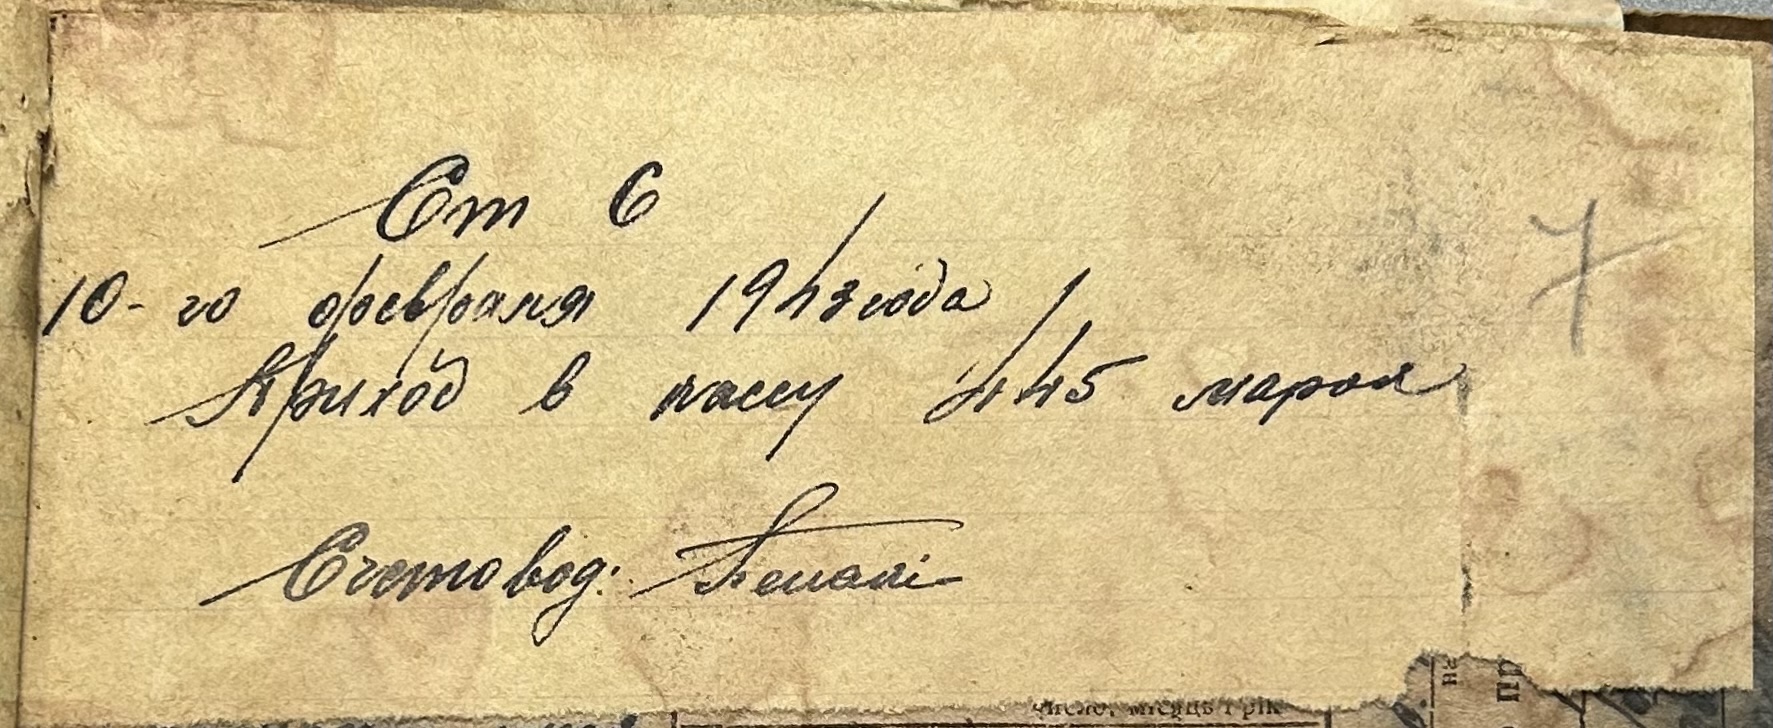 Ст 6
7
10-го февраля 1943 года
Приход в кассу 445 марок
Счетовод:
число, місяць і рік